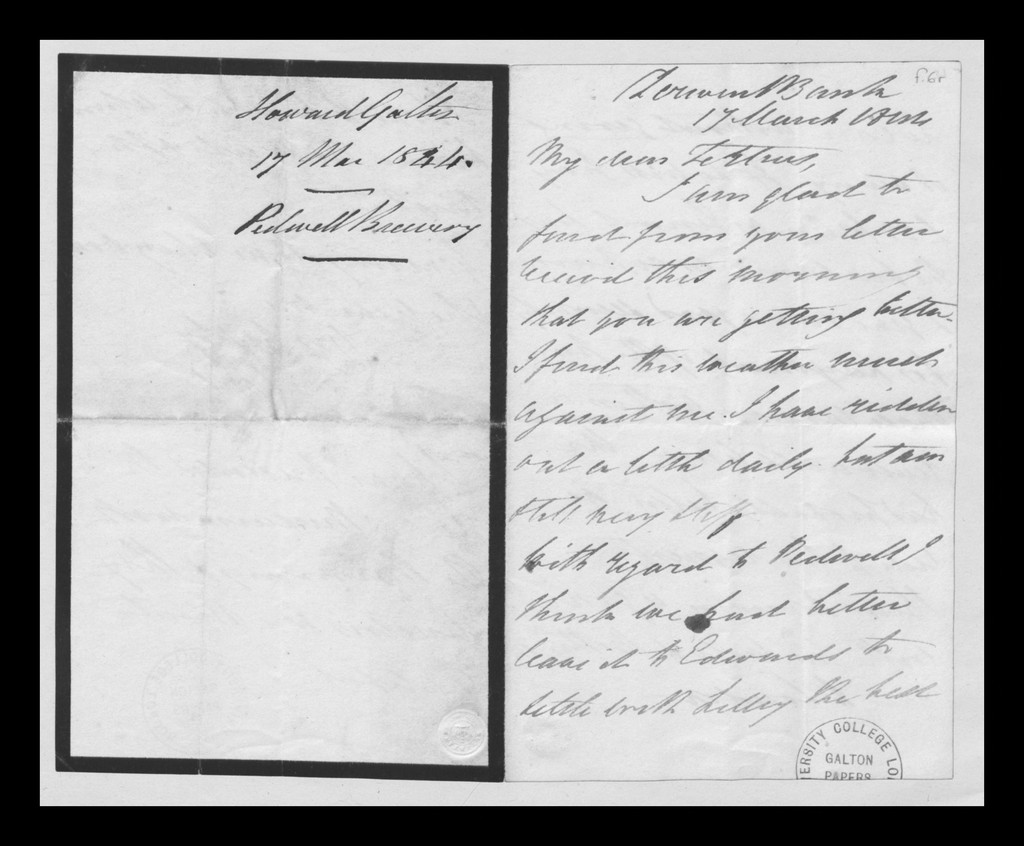 Howard Galton
17 Mar 1844.
Pedwell Brewery
f.6r
Derwent Bank
17 March 1844
My dear Tertius,
I am glad to
find from your letter
receivd this morning
that you are getting better.
I find this weather much
against me. I have ridden
out a little daily but am
still very stiff
With regard to Pedwell I
think we had better
leave it to Edwards to
settle with Lilley the best
ERSITY COLLEGE LO
GALTON
PAPERS